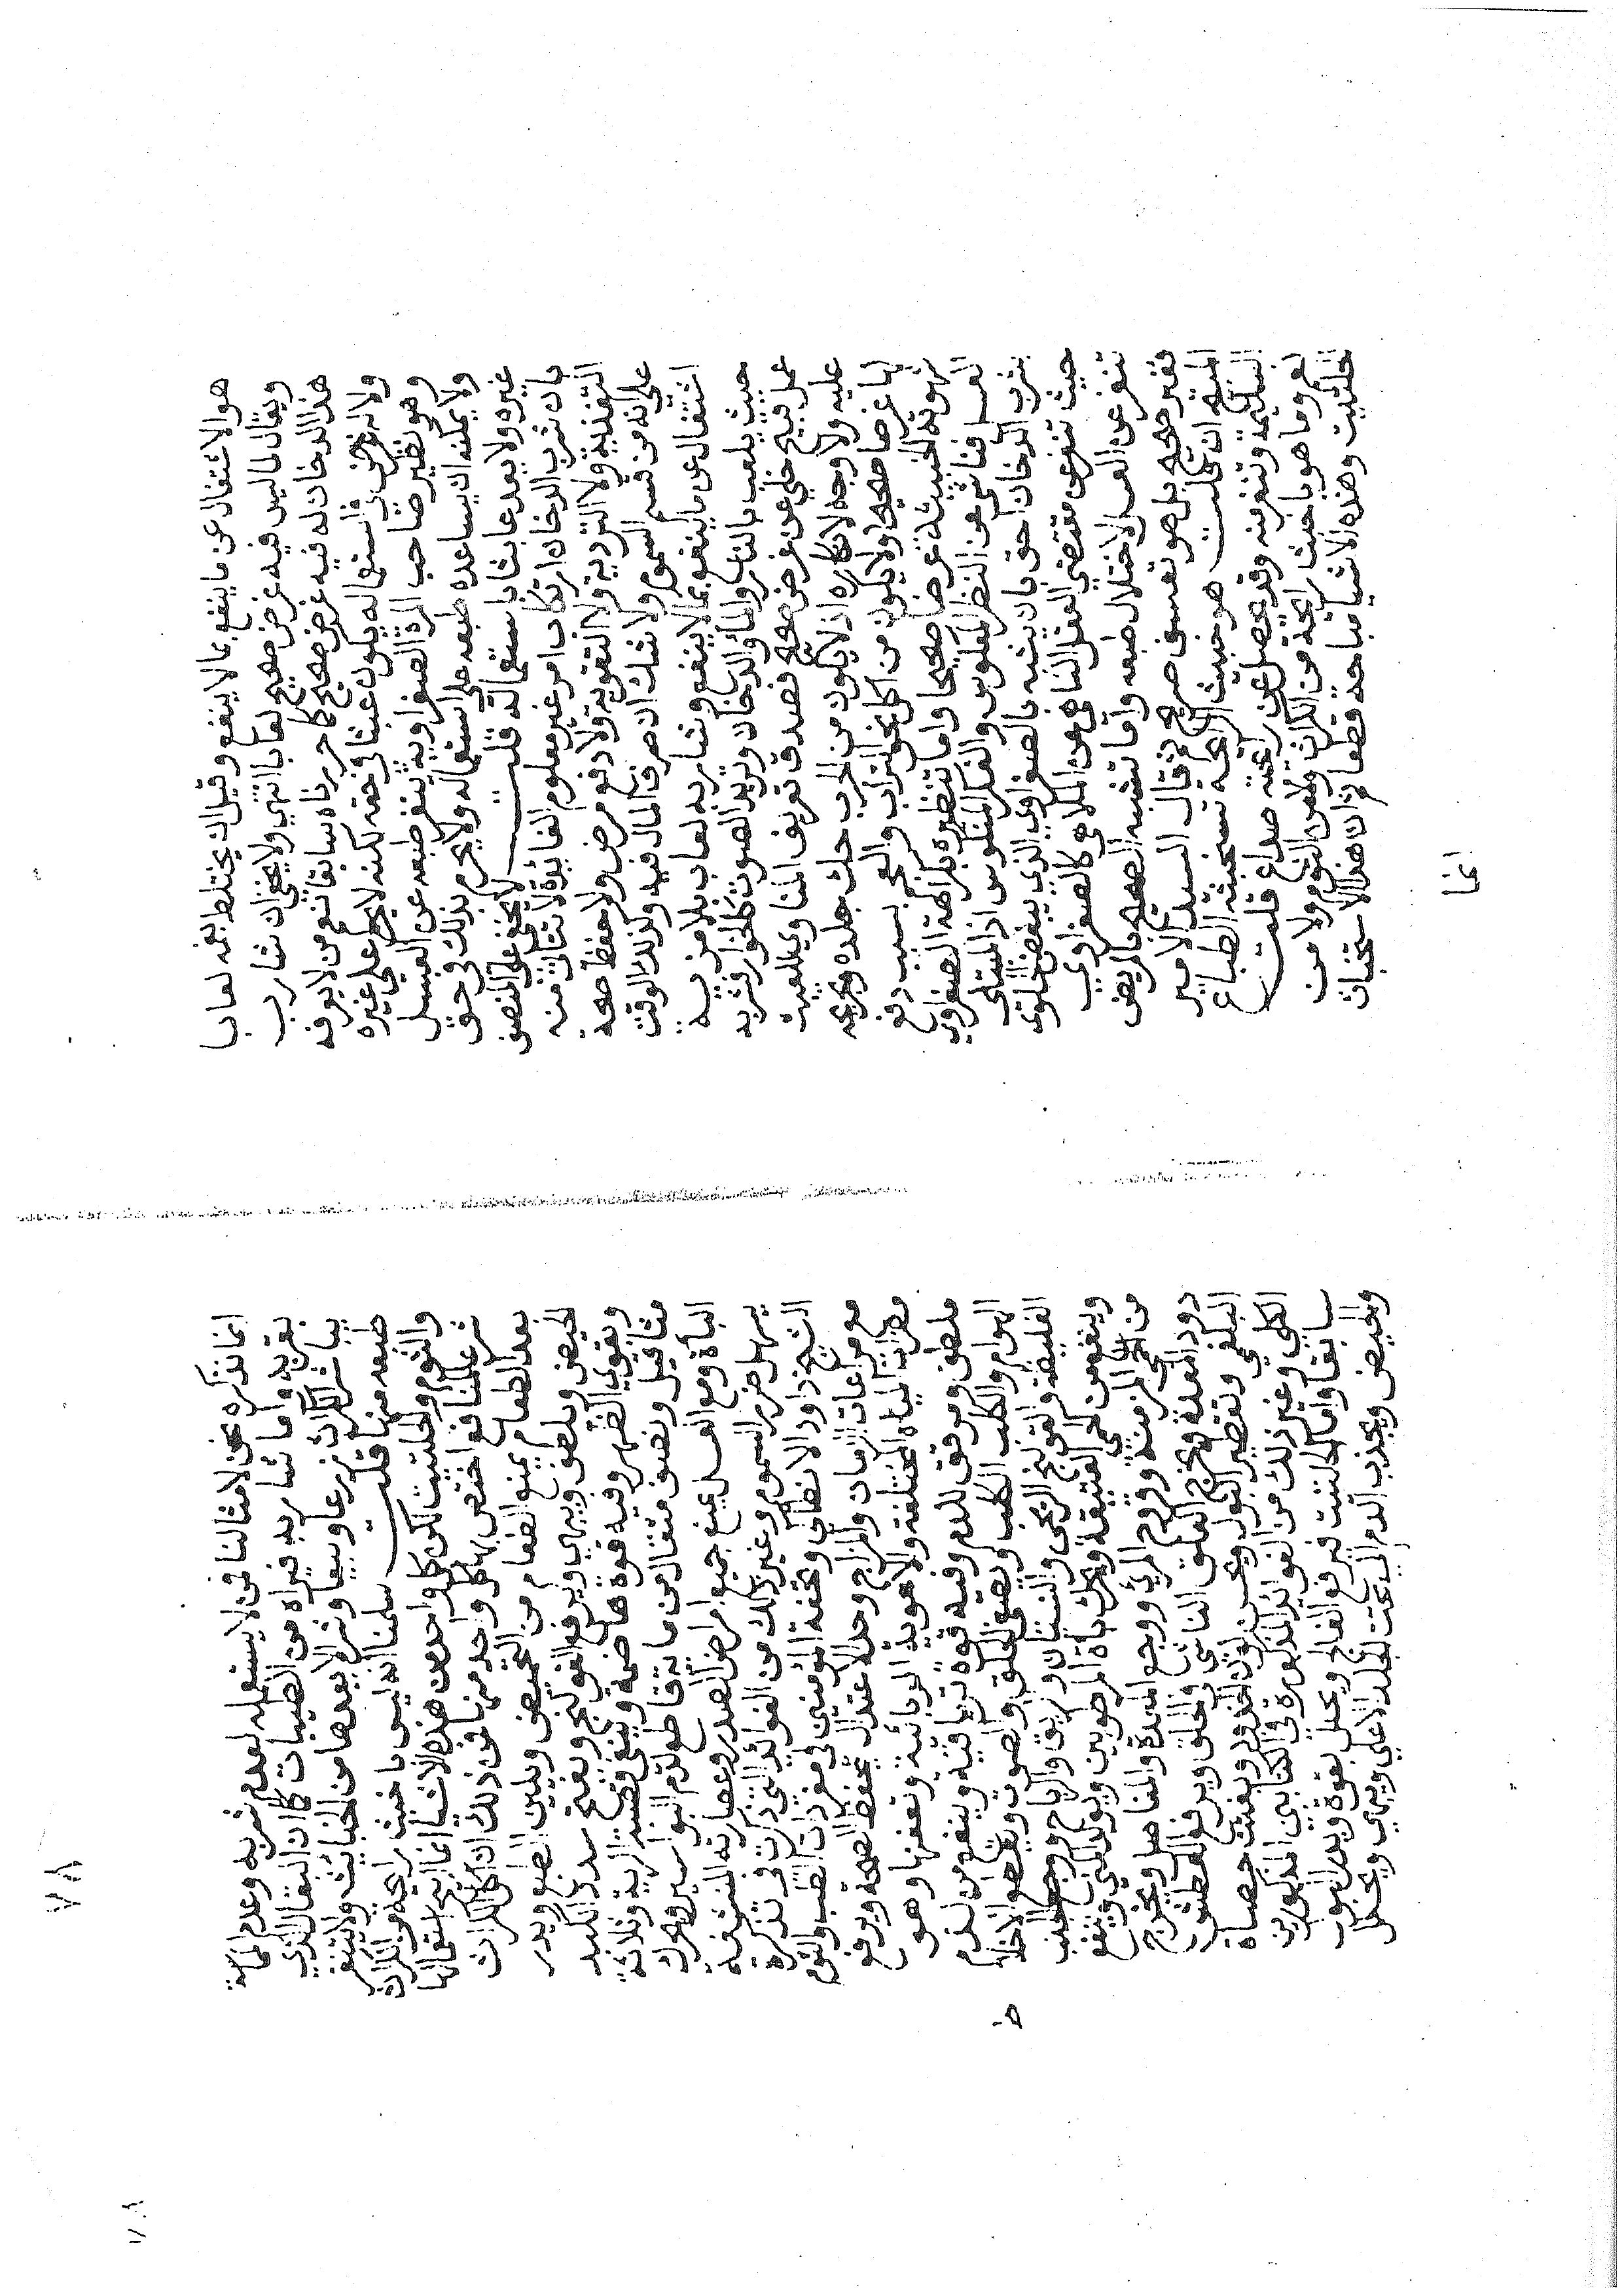 هو الاشتغال عن ما ينفع بما لا ينفع وقيل ان يختلط بفمه لعاب
ويقال لما ليس فيه غرض صحيح لعابا انتهى ولا يخفى ان شارب
هذا الدخان له فيه غرض صحيح كما حررناه سابقا نعم من لا يعرفه
ولا له غرض في استعماله يكون عبثا في حقه لكنه لا يحكم على غيره
وهو نظير صاحب المرة الصفراوية ينفر طبعه عن العسل
ولا يمكنه ان يساعده طبعه على استعماله ولا يحرم بذلك في حق
غيره ولا يعد عابثا باستعماله قلت لا يخفى على المنصف
بان شرب الدخان ارتكاب امر غير معلوم الفايدة لا تتاتى منه
التغذية ولا التردية ولا التقوية ولا دفع مرض ولا حفظ صحة
على انه من قسم السموم ولا شك ان صرف المال فيه وكذلك الوقت
اشتغال عن ما ينفع بما لا ينفع وشاربه لعاب بلا مزية
حيث يلعب بالنار والماء والدخان ويريد الصوت كالخوار فشربه
عمل قبيح خلي عن غرض صحيح فصدق تعريف المناوي للعبث
عليه ولا وجه لانكاره اذ لا يكون من الجرب حك جلده ويجرحه
لها غرضا صحيحا ولا يكون من اكل نحو التراب والفحم بسبب دفع
شهوته الخبيثة غرضا صحيحا واما تنظيره بكراهة الصفراوية
لعسل فناشئ من النظر المعكوس والفكر المنكوس اذ المبتلى
بشرب الدخان احق بان يشبه بالصفراوي الذي يبغض الحلوى
حيث تنفر عن مقتضى العقل الناهي عن الملاهي كالصفراوي
تنفر عن العسل لاختلال طبعه واما تشبيه الصحيح بالمريض
فغير صحيح بل هو تعسف صريح ثم قال السيد الامير
المنبه ان قلت هو خبيث الرائحة تستخبثه الطباع
السليمة وتنفر منه وقد يحصل عن رائحته صداع قلت
نعم وما هو باخبث رائحة من الكراث ولا من الثوم ولا من
الحلتيت وهذه الاشيا مباحة قطعا ثم ان هذا الاستخباث
انما
انما نذكره نحن لامثالنا ممن لا يستعمله لعدم شربه وعدم المامه
بقربه واما شاربه فيراه من الطيبات كما ان البقال الذي
يباشر الكراث زرعا وبيعا وشرا لا يعدها من الخبائث ولا ينفر
طبعه منها قلت سلمنا انه ليس باخبث رايحة من الكراث
والثوم والحلتيت لكن كل واحد من هذه الاشيا انما ابيح استعمالها
شرعا لمنافع اختص بها كل واحد منها فمن ذلك ان اكل الكراث
بعد الطعام يمنع الطعام من التحميض ويلين الطبع ويدر
الحيض ويلطف ويهيي ويرفع القولنج ويفتح سدد الكبد
ويقوي الظهر وفيه قوة هاضمة وينقي قصبة الرية وثلاثة
مثاقيل ونصف مثقال من مايه قاطع لدم البواسير ومحرك
الباءة ومع العسل ينفع جميع امراض الصدر وعصارته المنشفة
يسهل ضرر السموم وغير ذلك من الفوائد التي ذكرت في تذكرة
الشيخ داود الانطاكي وتحفة المؤمنين في مفردات الطب والثوم
مع مراعات الزمان والمزاج وحد الاعتدال يحفظ الصحة ويرفع
مضرات المياه المختلفة والاهوية الوبائية وتعفنها وهو
ملطف ومرقق للدم وفيه قوة ترياقية وينفع من السموم
الهوام والكلب الكلب ويصفي الحلق والصوت ويقطع الاخلاط
الغليظة والقولنج الريحي والنسيان والربو والرياح ووجع الجنب
وينفع من الحمى العتيقة ويحرك باه المرطوبين ويولد المني وينفع
من الحمى المزمنة ووجع المعدة والمفاصل ويخرج
دود المعدة ويخرج العلق الناشي في الحلق ويرفع العطش
البلغمي وتقطير البول ويحسن لون الخدود ويفتت حصاة
الكلى وغير ذلك من الفوائد المذكورة في الكتابين المذكورين
سابقا واما الحلتيت فيرفع الفالج ويحلل بقوة ويدر البول
والحيض ويجذب الدم الى تحت الجلد الاعلى ويهيي ويحلل
٧٨
٧٨